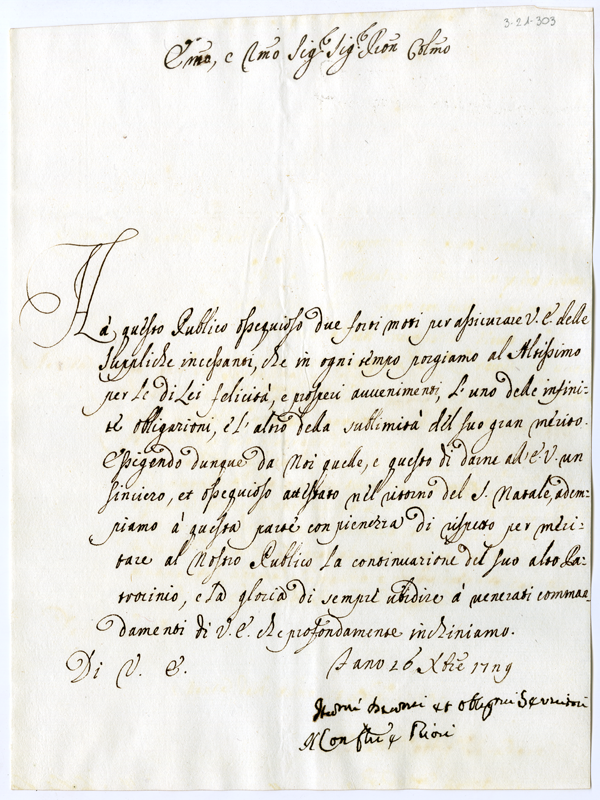 3-21-303
Emo, e Rmo Sig.r Sig.r Pron Colmo
Hà questo Publico ossequioso due forti moti per assicurare V. E. delle
suppliche incessanti, che in ogni tempo porgiamo al Altissimo
per le di Lei felicità, e prosperi avvenimenti, l'uno delle infini-
te obligazioni, e l'altro della sublimità del suo gran merito.
Essigendo dunque da Noi quelle, e questo di darne all'E. V. un
sinciero, et ossequioso attestato nel ritorno del S. Natale, adem-
piamo à questa parte con pienezza di rispetto per meri-
tare al Nostro Publico la continuazione del suo alto Pa-
trocinio, e la gloria di sempre ubidire à venerati comman-
damenti di V. E. che profondamente inchiniamo.
Di V. E.
Fano 16 Xbre 1729
et Servitori
Il Confre e Priori